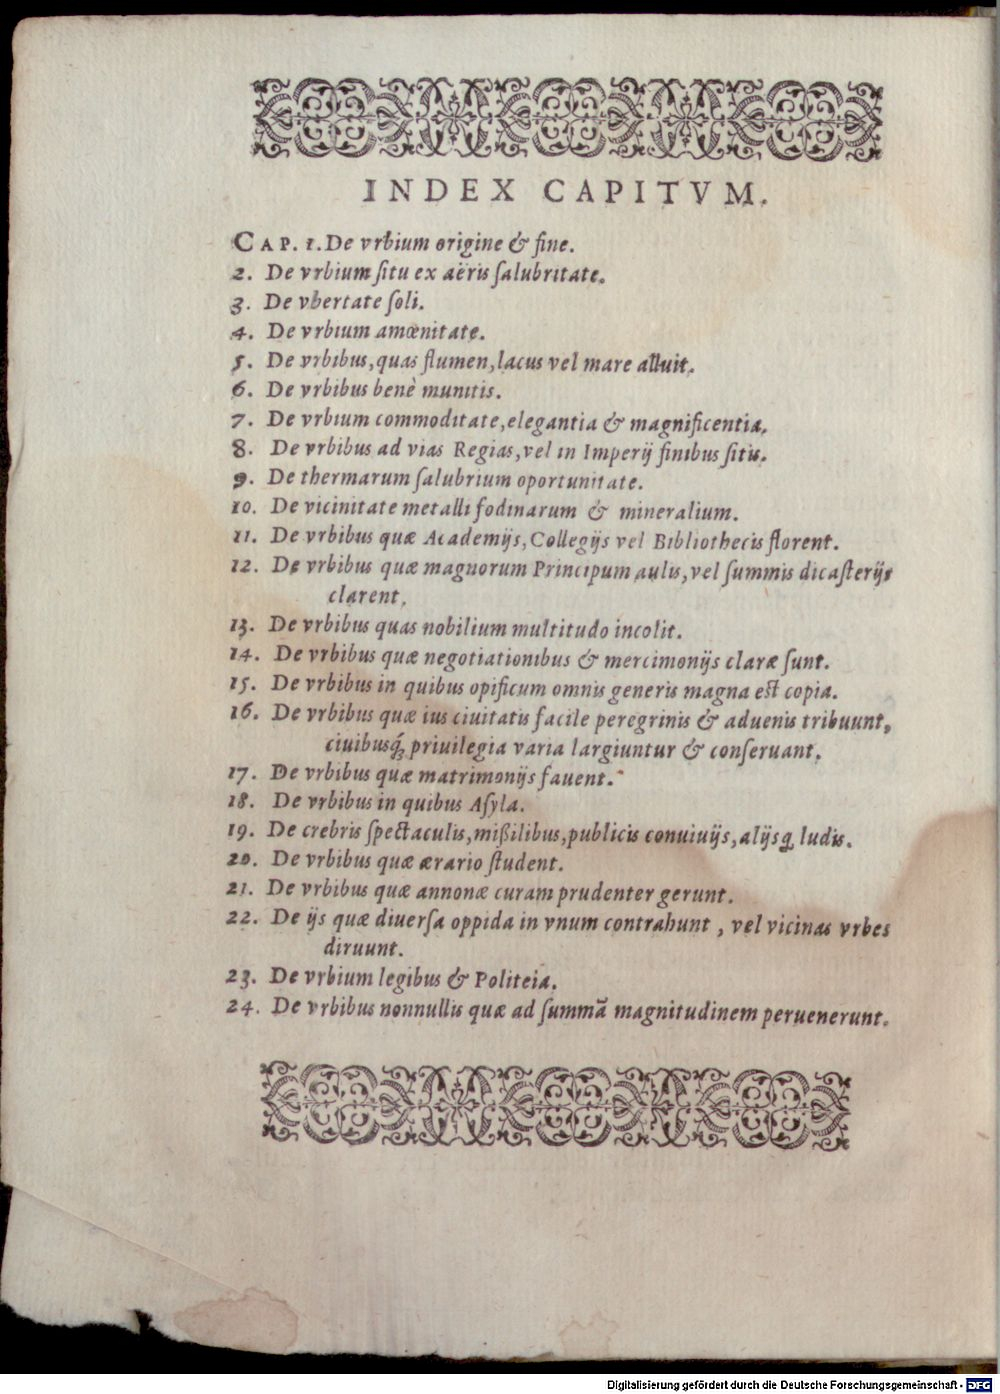 INDEX CAPITVM.
CAP. 1. De vrbium origine & fine.
2. De vrbium ſitu ex aëris ſalubritate.
3. De vbertate ſoli.
4. De vrbium amœnitate.
5. De vrbibus, quas flumen, lacus vel mare alluit.
6. De vrbibus benè munitis.
7. De vrbium commoditate, elegantia & magnificentia.
8. De vrbibus ad vias Regias, vel in Imperij finibus ſitis.
9. De thermarum ſalubrium oportunitate.
10. De vicinitate metalli fodinarum & mineralium.
11. De vrbibus quæ Academijs, Collegijs vel Bibliothecis florent.
12. De vrbibus quæ magnorum Principum aulis, vel ſummis dicaſterijs
clarent.
13. De vrbibus quas nobilium multitudo incolit.
14. De vrbibus quæ negotiationibus & mercimonijs claræ ſunt.
15. De vrbibus in quibus opificum omnis generis magna est copia.
16. De vrbibus quæ ius ciuitatis facile peregrinis & aduenis tribuunt,
ciuibusq́; priuilegia varia largiuntur & conſeruant.
17. De vrbibus quæ matrimonijs fauent.
18. De vrbibus in quibus Aſyla.
19. De crebris ſpectaculis, mißilibus, publicis conuiuijs, alijsq; ludis.
20. De vrbibus quæ ærario ſtudent.
21. De vrbibus quæ annonæ curam prudenter gerunt.
22. De ijs quæ diuerſa oppida in vnum contrahunt, vel vicinas vrbes
diruunt.
23. De vrbium legibus & Politeia.
24. De vrbibus nonnullis quæ ad ſummā magnitudinem peruenerunt.
Digitalisierung gefördert durch die Deutsche Forschungsgemeinschaft - DFG